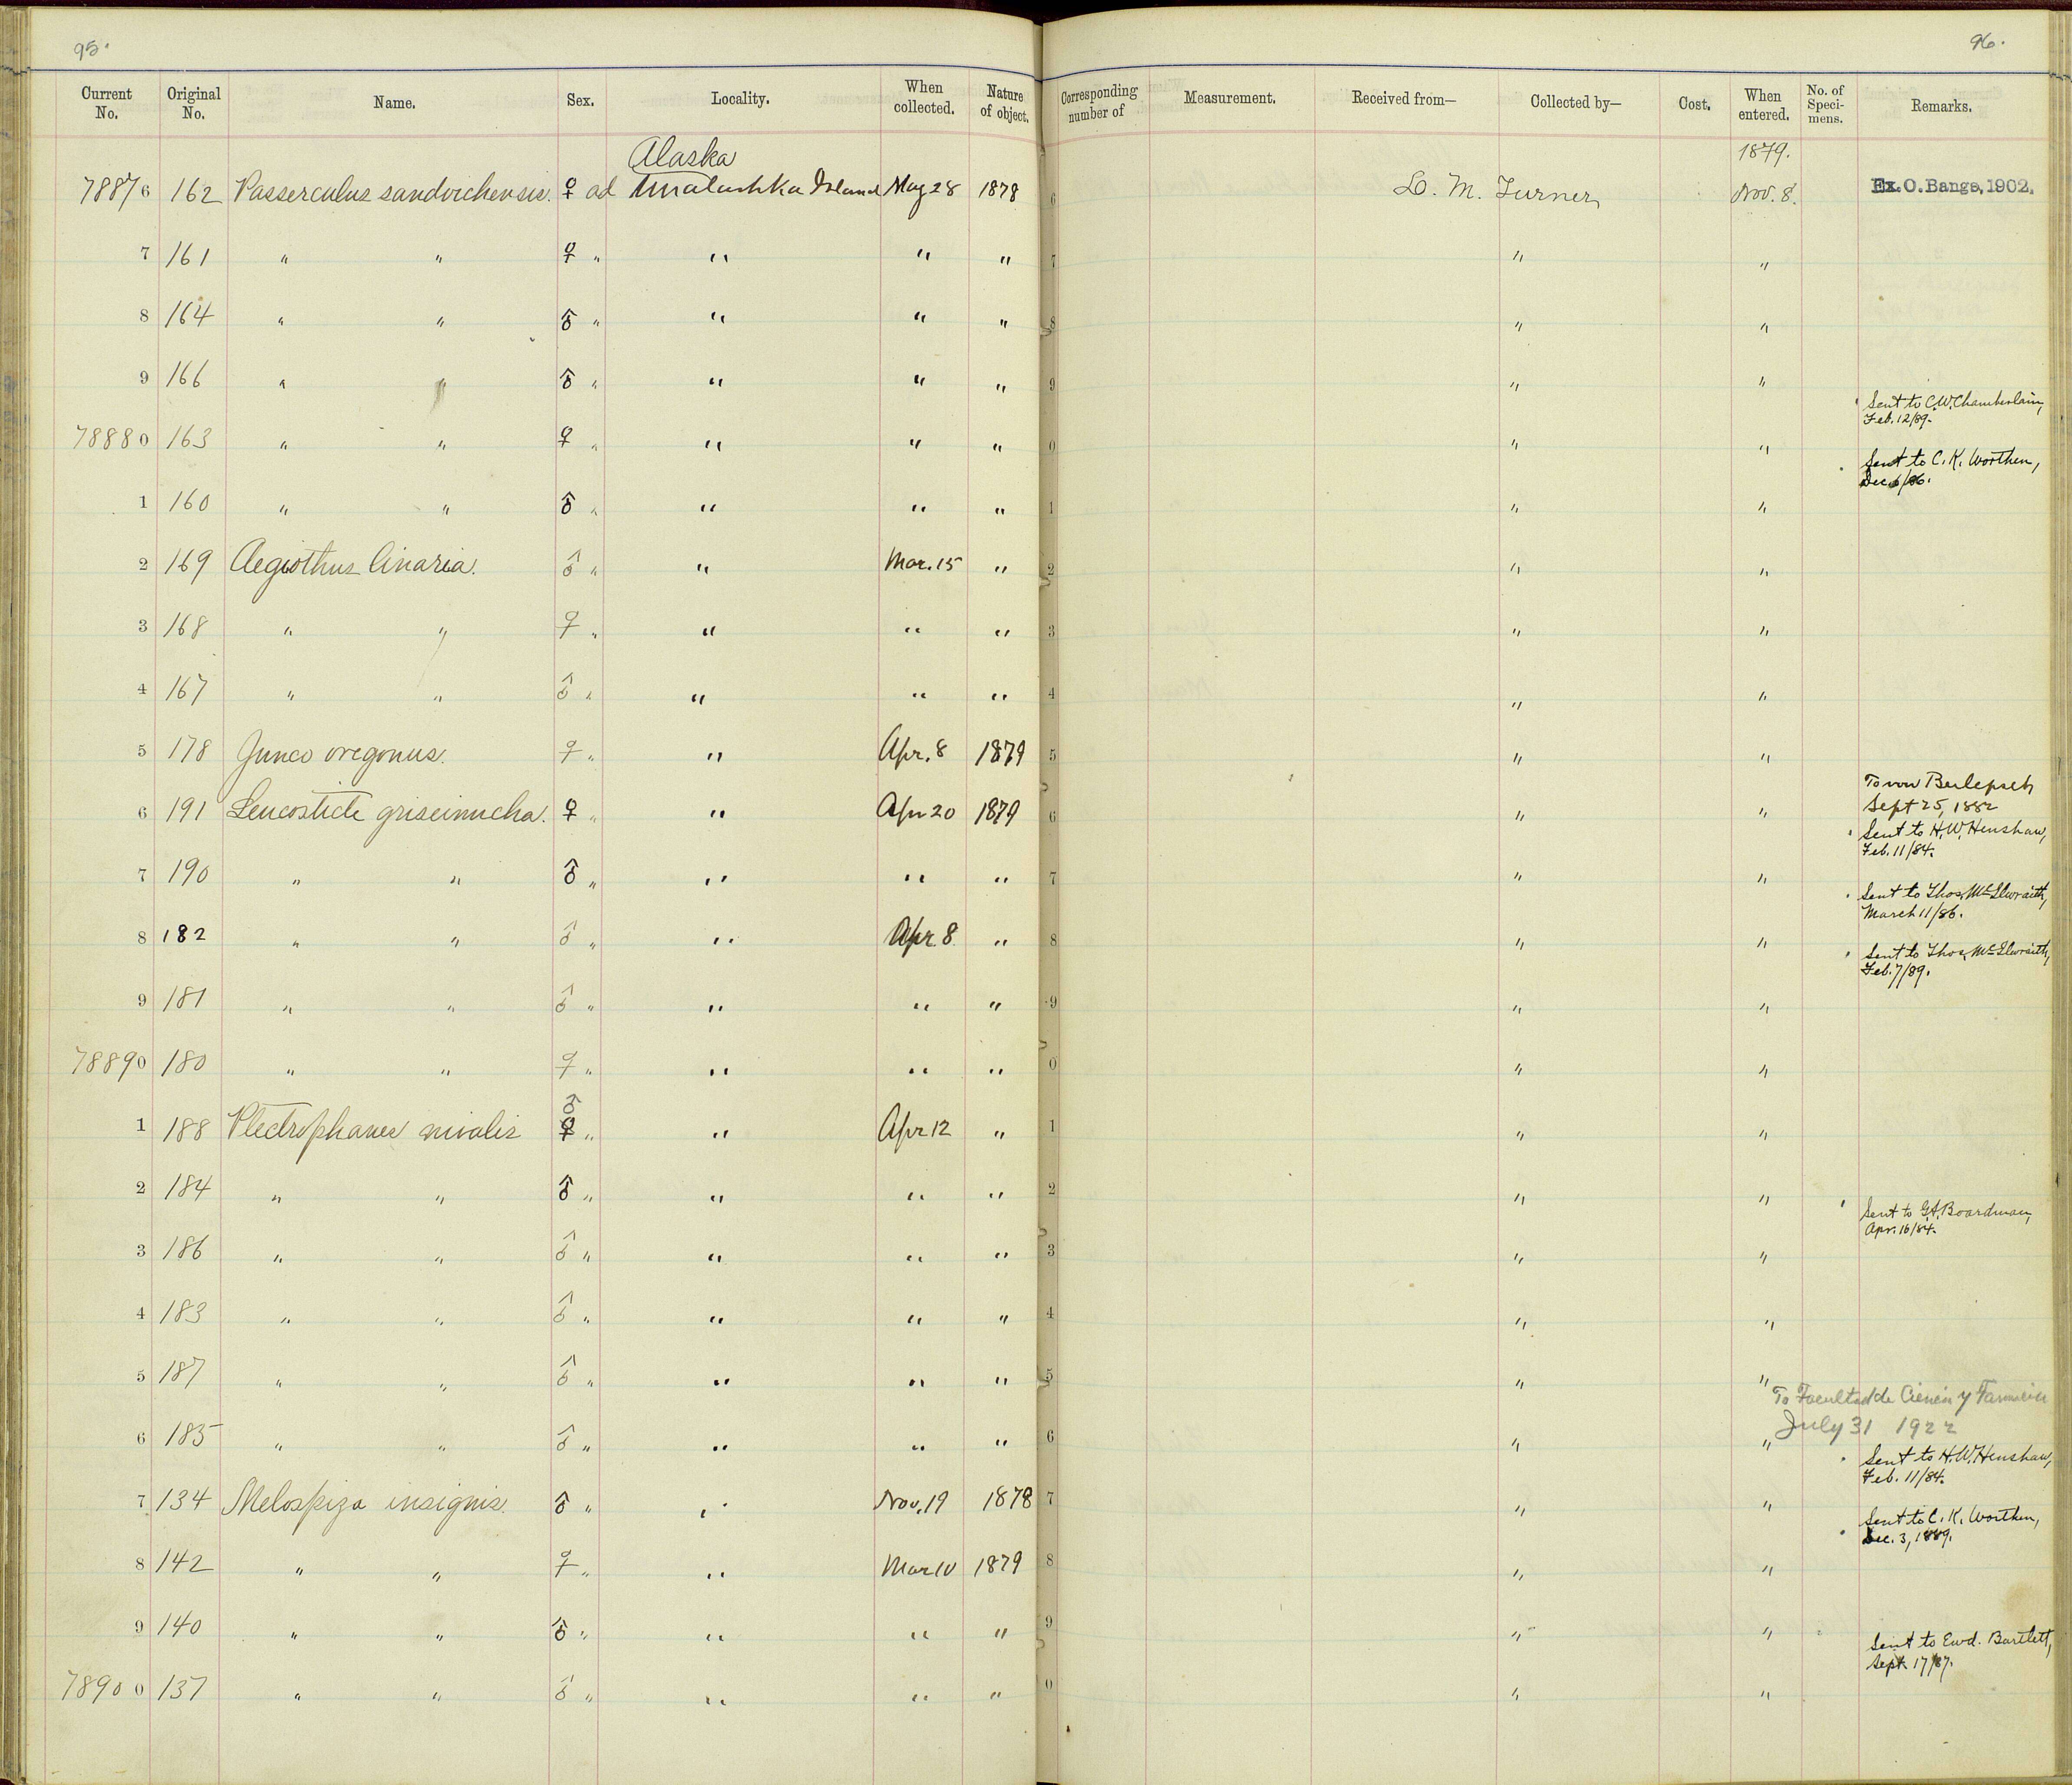 95.
96.
Current No. Original No. Name. Sex. Locality. When collected. Nature of object. Corresponding number of Measurement. Received from— Collected by— Cost. When entered. No. of Speci-mens. Remarks.
Alaska 1879.
78876 162 Passerculus sandvichensis. ♀ ad Unalashka Island May 28 1878 6 L. M. Turner Nov. 8. Ex. O. Bangs, 1902.
7 161 " " ♀ " " " " 7 " "
8 164 " " ♂ " " " " 8 " "
9 166 " " ♂ " " " " 9 " "
Sent to C.W. Chamberlain,
Feb. 12/89.
78880 163 " " ♀ " " " " 0 " "
Sent to C. K. Worthen,
Dec. 6/86.
1 160 " " ♂ " " " " 1 " "
2 169 Aegiothus linaria. ♂ " " Mar. 15 " 2 " "
3 168 " " ♀ " " " " 3 " "
4 167 " " ♂ " " " " 4 " "
5 178 Junco oregonus. ♀ " " Apr. 8 1879 5 " "
To von Berlepsch
Sept 25, 1882
6 191 Leucosticte griseinucha. ♀ " " Apr 20 1879 6 " "
Sent to H. W. Henshaw,
Feb. 11/84.
7 190 " " ♂ " " " " 7 " "
Sent to Thos. McIlwraith,
March 11/86.
8 182 " " ♂ " " Apr. 8 " 8 " "
Sent to Thos. McIlwraith,
Feb. 7/89.
9 181 " " ♂ " " " " 9 " "
78890 180 " " ♀ " " " " 0 " "
♂
1 188 Plectrophanes nivalis ♀ " " Apr 12 " 1 " "
2 184 " " ♂ " " " " 2 " "
Sent to G.A. Boardman,
Apr. 16/84.
3 186 " " ♂ " " " " 3 " "
4 183 " " ♂ " " " " 4 " "
5 187 " " ♂ " " " " 5 " "
To Facultad de Cienc y
July 31 1922
6 185 " " ♂ " " " " 6 " "
Sent to H. W. Henshaw,
Feb. 11/84.
7 134 Melospiza insignis. ♂ " " Nov. 19 1878 7 " "
Sent to C. K. Worthen,
Dec. 3, 1889.
8 142 " " ♀ " " Mar 10 1879 8 " "
9 140 " " ♂ " " " " 9 " "
Sent to Ewd. Bartlett,
Sept. 17/87.
78900 137 " " ♂ " " " " 0 " "